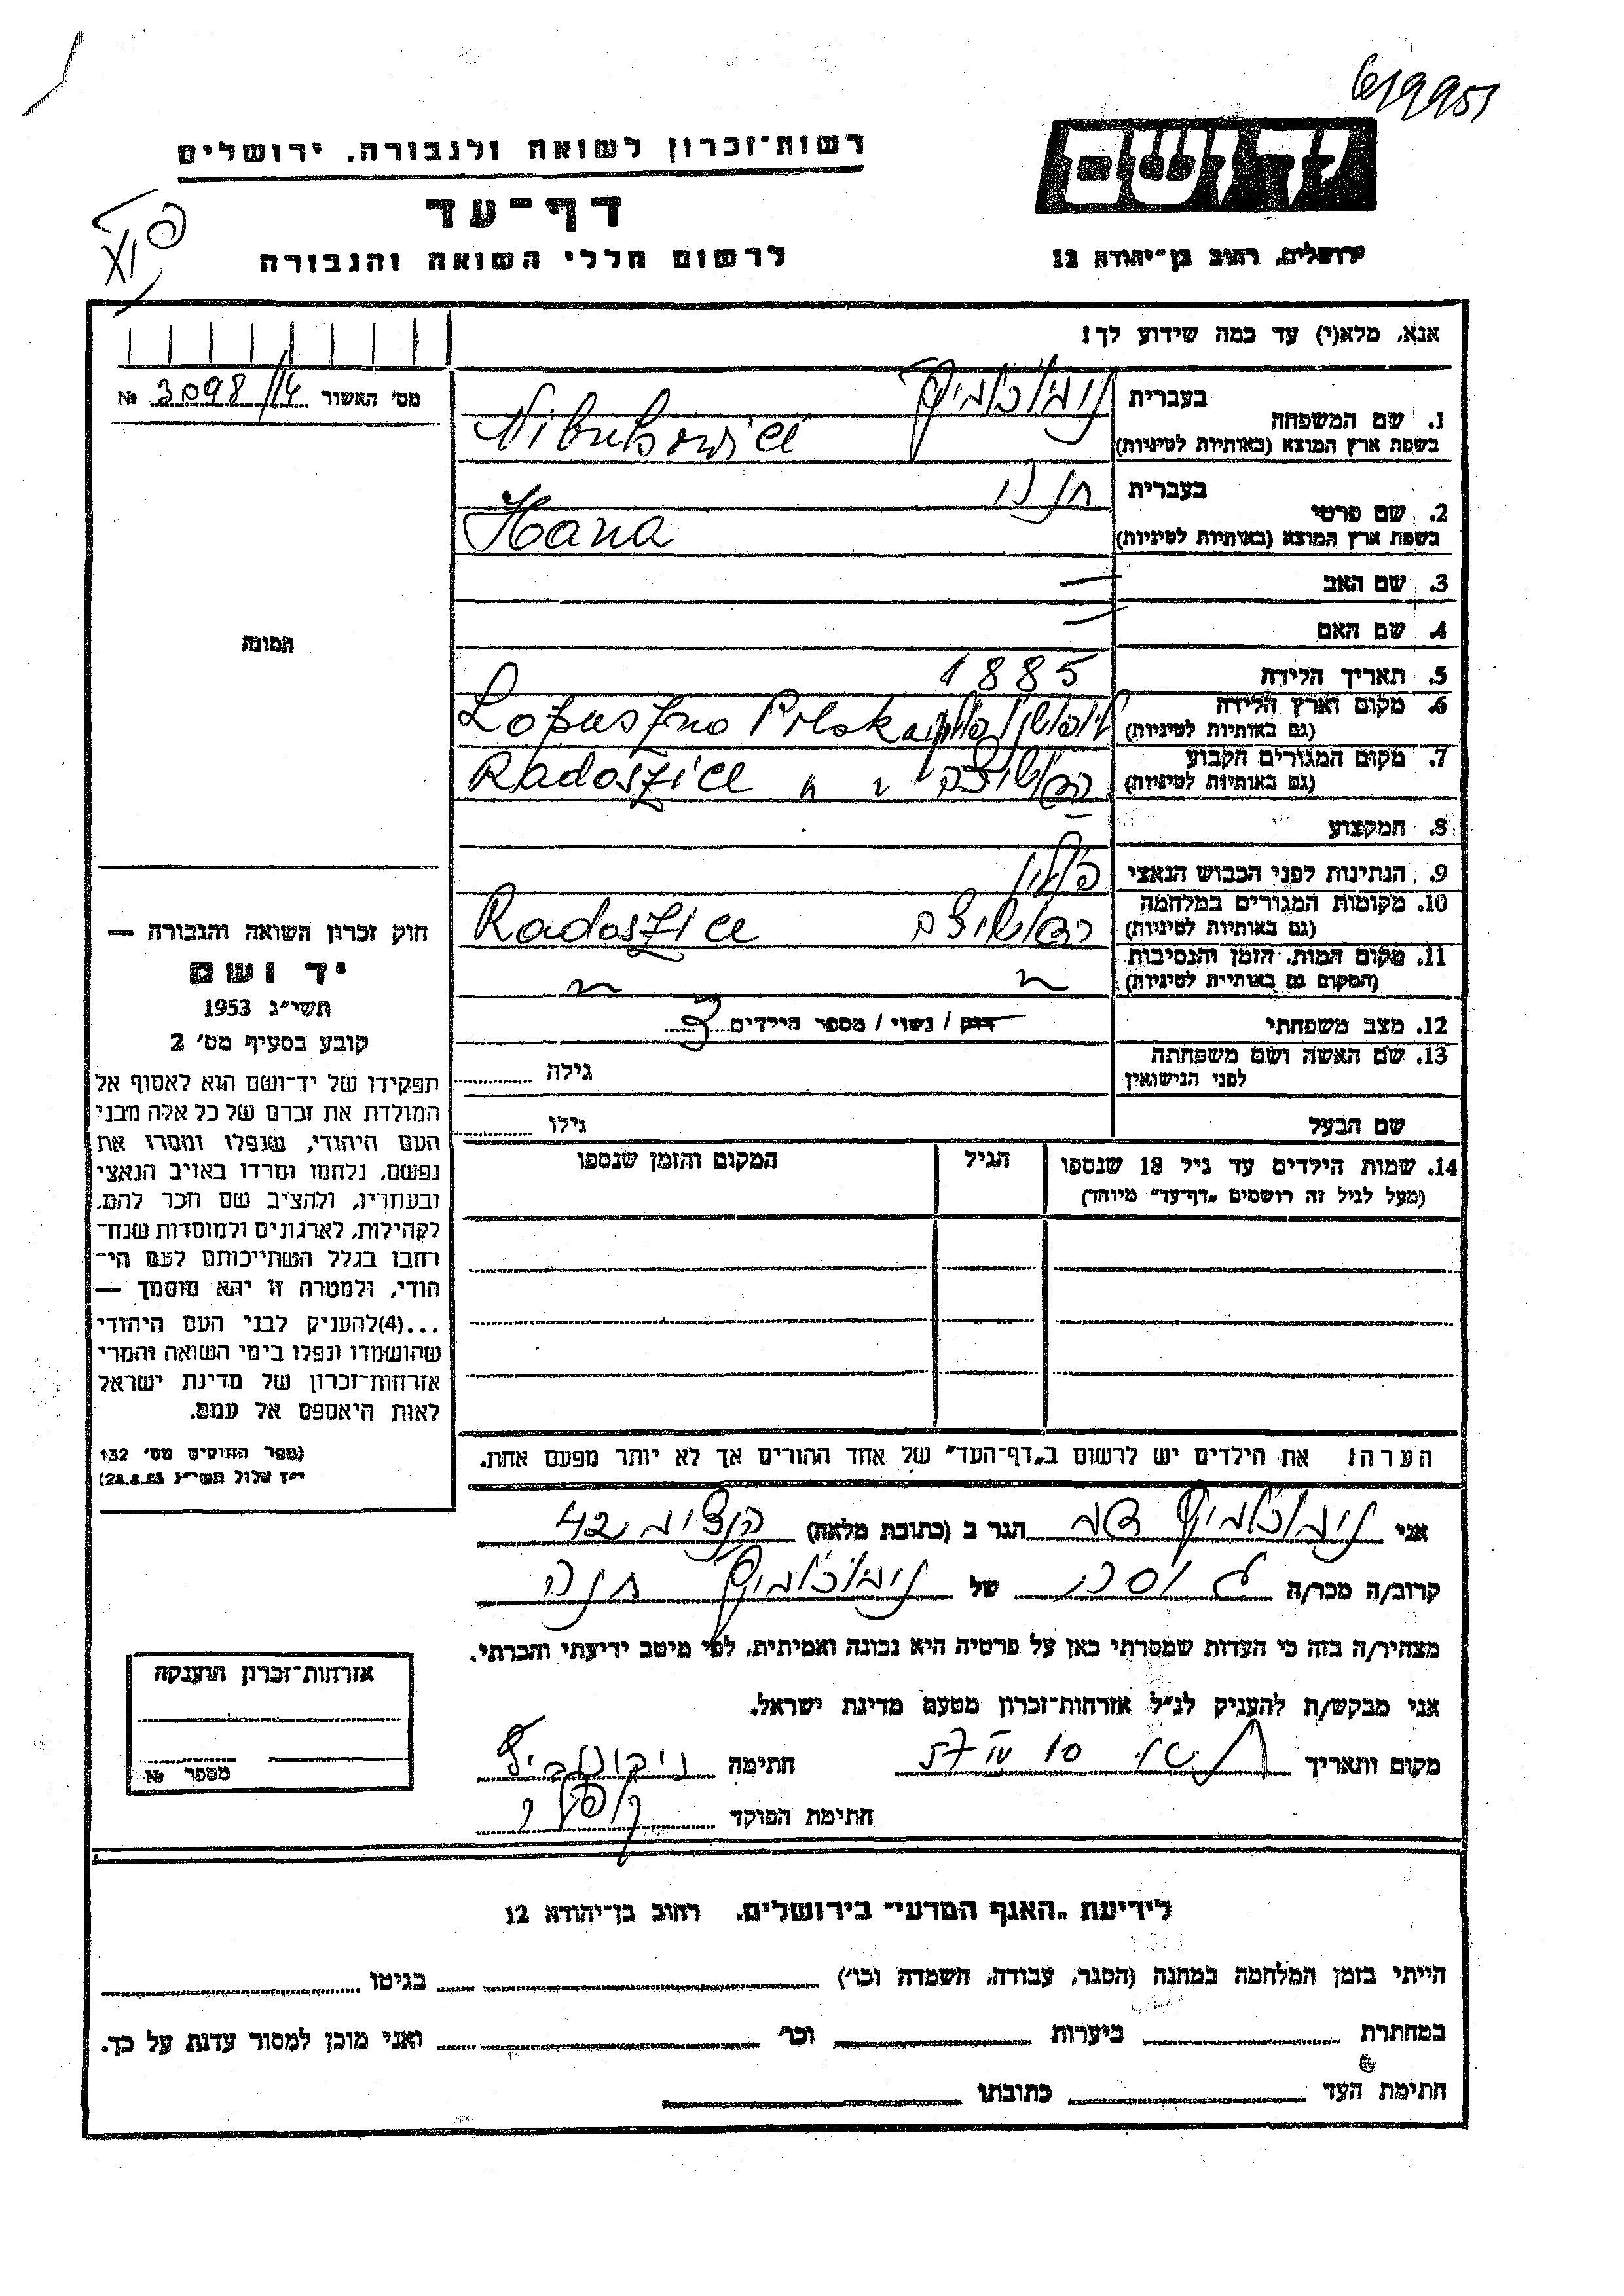 619951
רשות-זכרון לשואה ולגבורה, ירושלים
יד ושם
דף-עד
לרשום חללי השואה והגבורה
ירושלים, רחוב בן-יהודה 12
אנא, מלא(י) עד כמה שידוע לך!
מס' האשור 3098/14 №
בעברית
1. שם המשפחה
בשפת ארץ המוצא (באותיות לטיניות)
בעברית חנה
2. שם פרטי
בשפת ארץ המוצא (באותיות לטיניות) Hana
3. שם האב —
4. שם האם —
5. תאריך הלידה 1885
6. מקום וארץ הלידה Lopuszno Polska
(גם באותיות לטיניות)
7. מקום המגורים הקבוע Radoszice
(גם באותיות לטיניות)
8. המקצוע —
9. הנתינות לפני הכבוש הנאצי פולין
10. מקומות המגורים במלחמה Radoszice
(גם באותיות לטיניות)
11. מקום המות, הזמן והנסיבות
(המקום גם באותיות לטיניות)
12. מצב משפחתי רוק / נשוי / מספר הילדים 3
13. שם האשה ושם משפחתה גילה
לפני הנישואין
שם הבעל גילו
14. שמות הילדים עד גיל 18 שנספו הגיל המקום והזמן שנספו
(מעל לגיל זה רושמים „דף-עד" מיוחד)
הערה! את הילדים יש לרשום ב„דף-העד" של אחד ההורים אך לא יותר מפעם אחת.
תמונה
חוק זכרון השואה והגבורה —
יד ושם
תשי"ג 1953
קובע בסעיף מס' 2
תפקידו של יד-ושם הוא לאסוף אל
המולדת את זכרם של כל אלה מבני
העם היהודי, שנפלו ומסרו את
נפשם, נלחמו ומרדו באויב הנאצי
ובעוזריו, ולהציב שם וזכר להם,
לקהילות, לארגונים ולמוסדות שנח-
רבו בגלל השתייכותם לעם הי-
הודי, ולמטרה זו יהא מוסמך —
...(4)להעניק לבני העם היהודי
שהושמדו ונפלו בימי השואה והמרי
אזרחות-זכרון של מדינת ישראל
לאות היאספם אל עמם.
(ספר החוקים מס' 132
י"ז אלול תשי"ג 28.8.53)
אני הגר ב (כתובת מלאה) 42
קרוב/ה מכר/ה של חנה
מצהיר/ה בזה כי העדות שמסרתי כאן על פרטיה היא נכונה ואמיתית, לפי מיטב ידיעתי והכרתי.
אני מבקש/ת להעניק לנ"ל אזרחות-זכרון מטעם מדינת ישראל.
מקום ותאריך חתימה
חתימת הפוקד
אזרחות-זכרון הוענקה
מספר №
לידיעת „האגף המדעי" בירושלים, רחוב בן-יהודה 12
הייתי בזמן המלחמה במחנה (הסגר, עבודה, השמדה וכו') בגיטו
במחתרת ביערות וכו' ואני מוכן למסור עדות על כך.
חתימת העד כתובתו